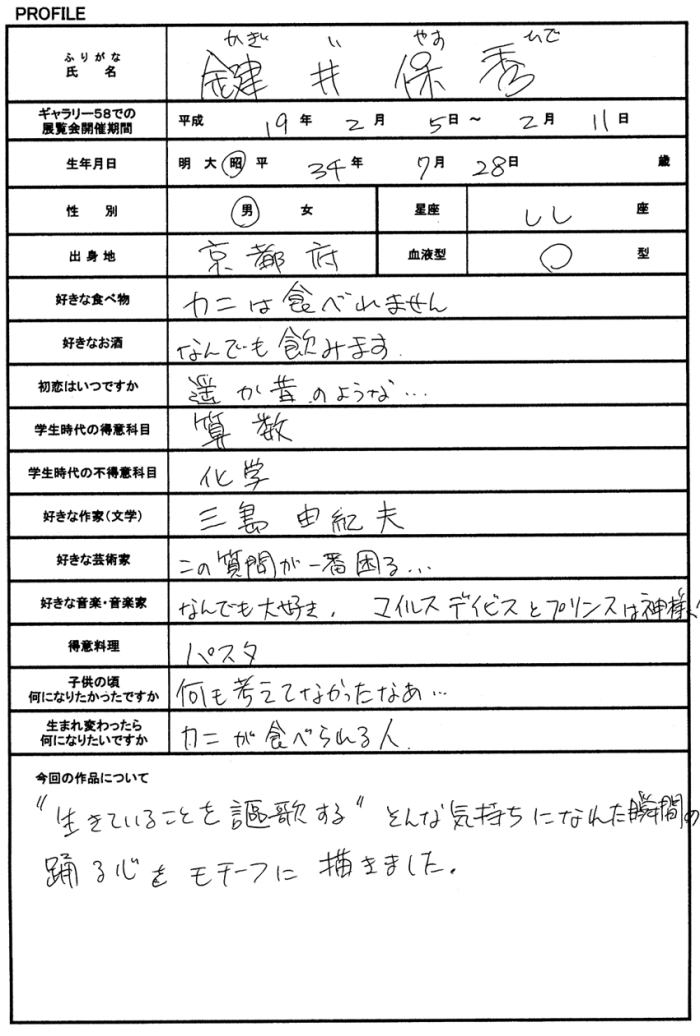 PROFILE
ふりがな かぎ い やす ひで
氏 名 鍵井保秀
ギャラリー58での
展覧会開催期間 平成 19年 2月 5日~ 2月 11日
生年月日 明 大 昭 平 34年 7月 28日 歳
性 別 男 女 星座 しし 座
出身地 京都府 血液型 O 型
好きな食べ物 カニは食べれません
好きなお酒 なんでも飲みます.
初恋はいつですか 遥か昔のような…
学生時代の得意科目 算数
学生時代の不得意科目 化学
好きな作家(文学) 三島由紀夫
好きな芸術家 この質問が一番困る…
好きな音楽・音楽家 なんでも大好き. マイルスデイビスとプリンスは神様
得意料理 パスタ
子供の頃
何になりたかったですか 何も考えてなかったなあ…
生まれ変わったら
何になりたいですか カニが食べられる人.
今回の作品について
"生きていることを謳歌する" そんな気持ちになれた瞬間の
踊る心をモチーフに描きました。